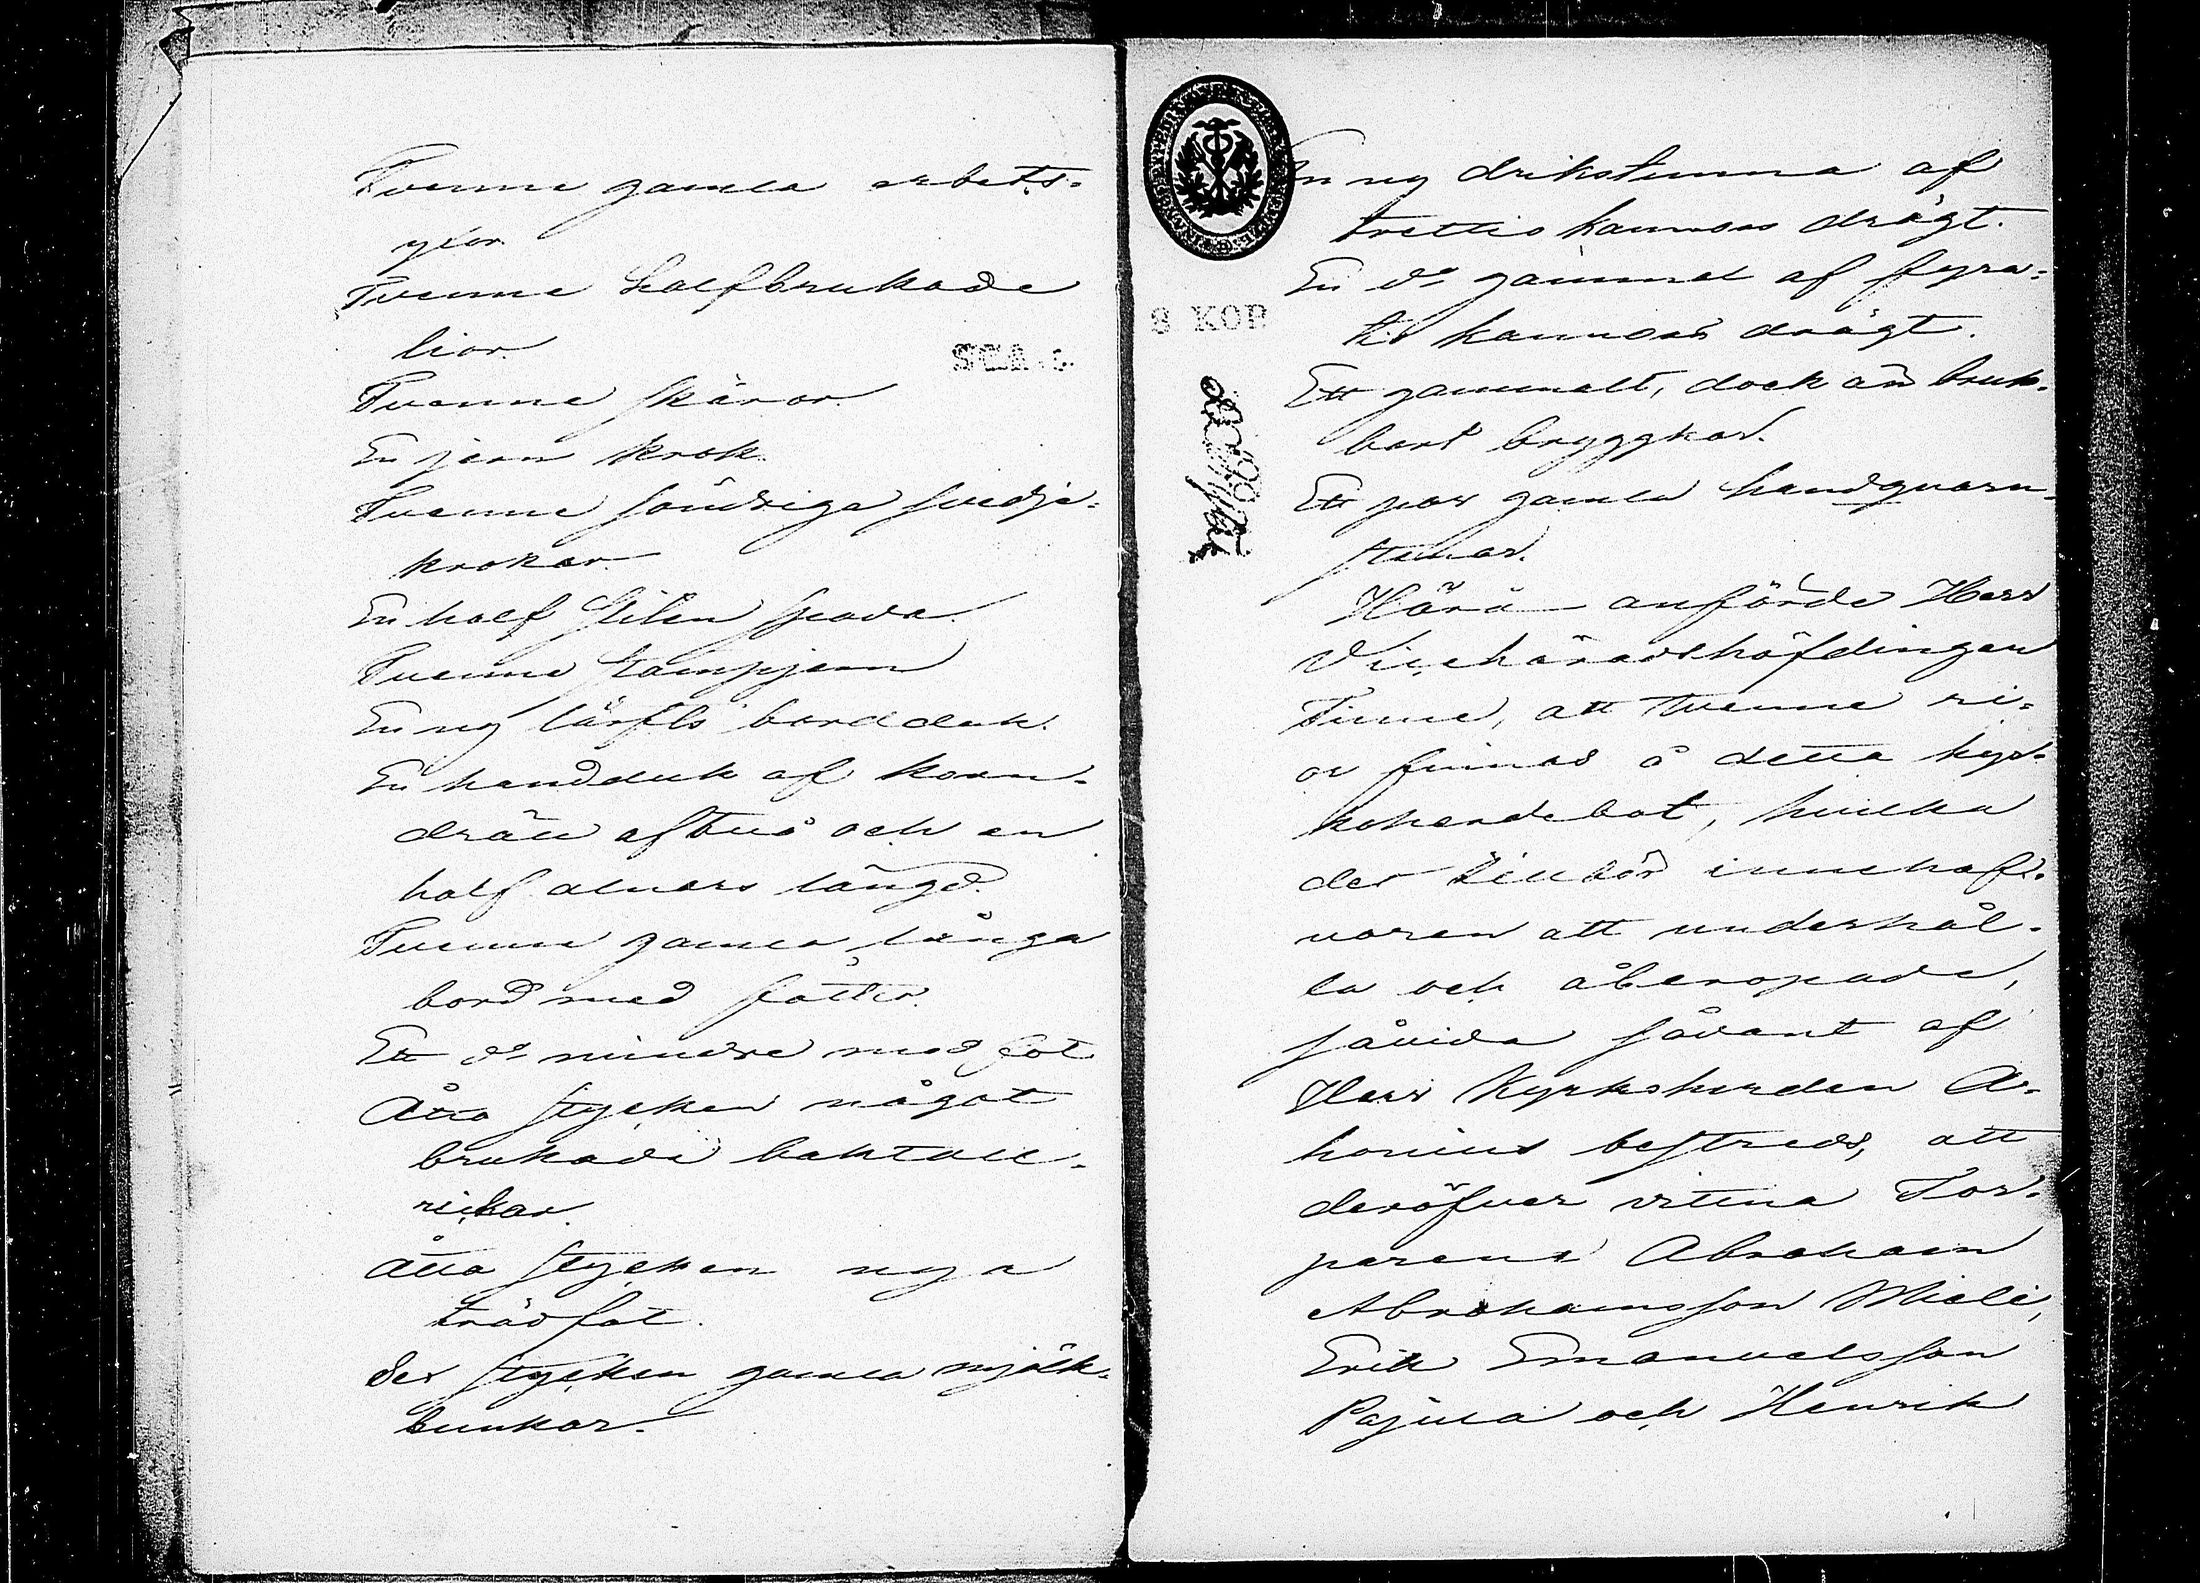 Tvenne gamla arbets-
yxor.
Tvenne halfbrukade
liar.
Tvenne skäror.
En jern krok.
Tvenne söndriga svedje-
krokar.
En half sliten spada.
Tvenne stampjern
En ny lärfts bordduk.
En handduk af korn-
dräll af två och en
half alnars längd.
Tvenne gamla långa
bord med fötter.
Ett d:o mindre med fot
Åtta stycken något
brukade baktall-
rickar.
Åtta stycken nya
trädfat.
Sex stycken gamla mjölk-
bunkar.
En ny drikstunna af
trettio kannors drägt.
En d:o gammal af fyra-
tio kannors drägt.
Ett gammalt, dock än bruk-
bart bryggkar.
Ett par gamla handqvarn-
stenar.
Härå anförde Herr
Vicehäradshöfdingen
Finne, att tvenne ri-
or finnas å detta kyr-
koherdebol, hvilka
det tillhör innehaf-
varen att underhål-
la och åberopade,
såvida sådant af
Herr Kyrkoherden A-
honius bestreds, att
deröfver vittna Tor-
parena Abraham
Abrahamsson Mieli,
Erik Emanuelsson
Pajula och Henrik
8 KOP.